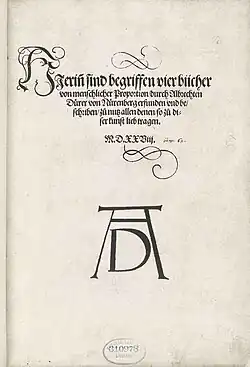 Hierinn sind begriffen vier bücher
von menschlicher Proportion durch Albrechten
Dürer von Nürenberg erfunden vnd be-
schriben zů nutz allen denen so zů di-
ser kunst lieb tragen.
M.D.XXViij.
AD
610973